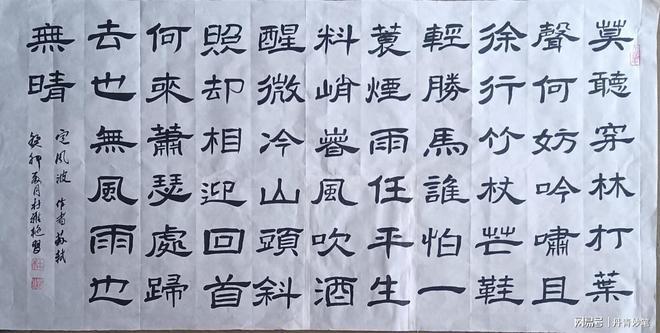 莫聽穿林打葉
聲何妨吟嘯且
徐行竹杖芒鞋
輕勝馬誰怕一
蓑煙雨任平生
料峭春風吹酒
醒微冷山頭斜
照却相迎回首
何來蕭瑟處歸
去也無風雨也
無晴
定風波 作者苏軾
癸卯夏月杜
网易号 | 丹青妙笔